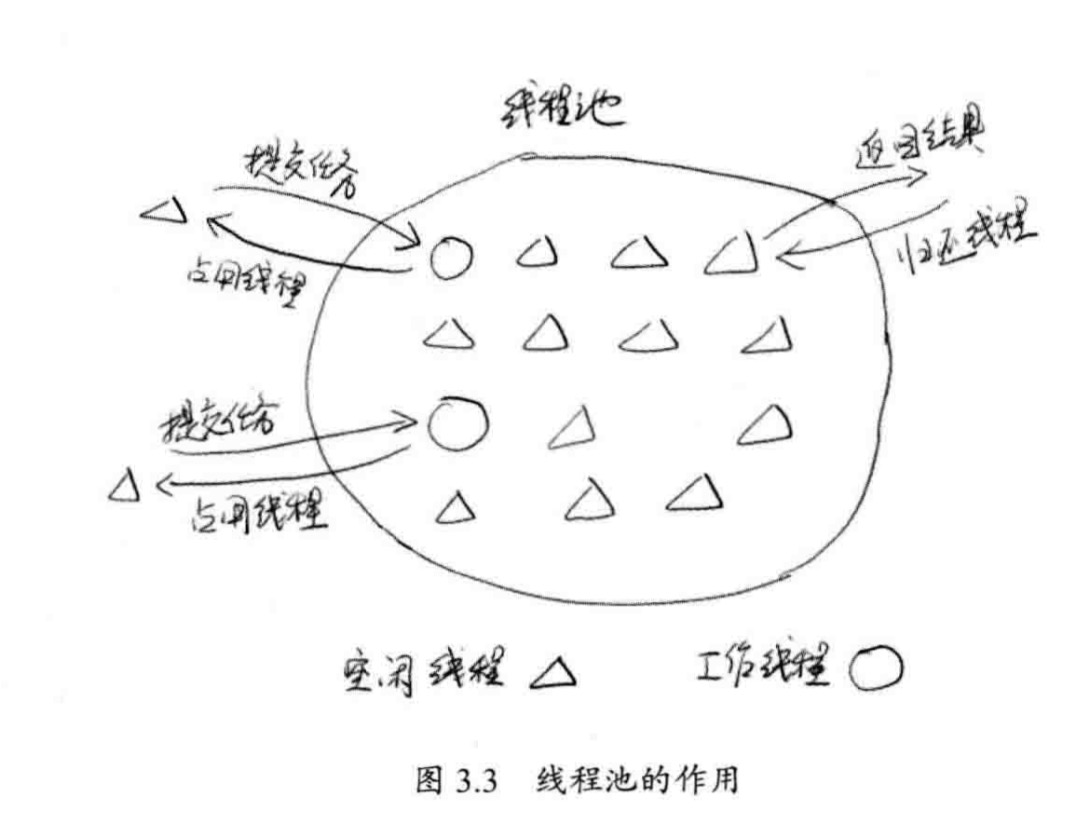 线程池
提交任务
返回结果
占用线程
归还线程
提交任务
占用线程
空闲线程
工作线程
图 3.3 线程池的作用